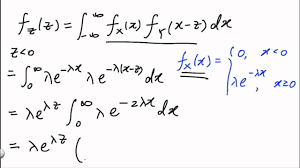 f_z(z) = ∫_{-∞}^{∞} f_x(x) f_Y(x-z) dx
z<0
= ∫_0^∞ λe^{-λx} λe^{-λ(x-z)} dx
f_x(x) = { 0, x<0
λe^{-λx}, x≥0
= λe^{λz} ∫_0^∞ λ e^{-2λx} dx
= λe^{λz} (